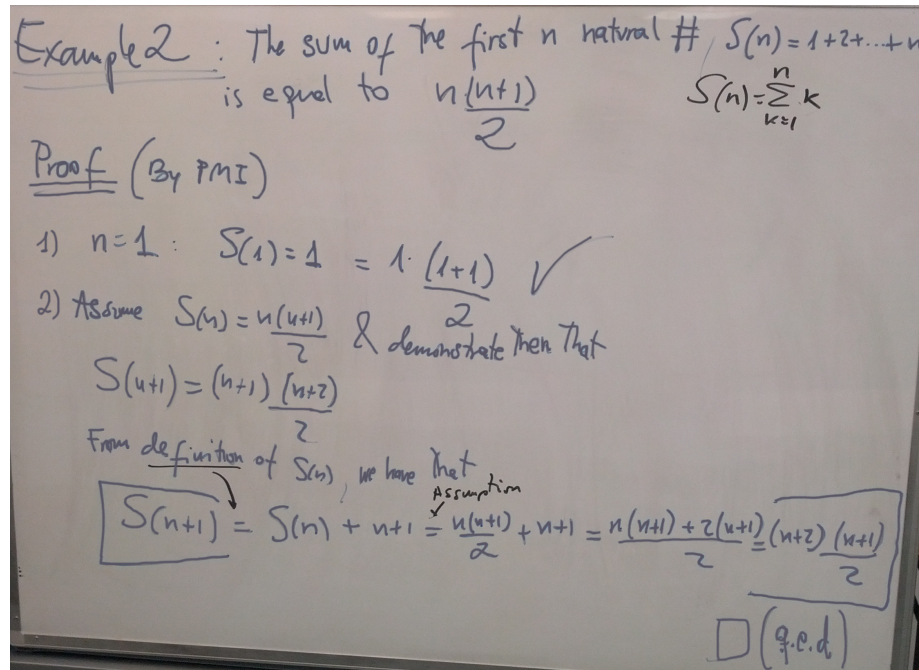 Example 2 : The sum of the first n natural #, S(n) = 1+2+...+n
is equal to n(n+1)/2 S(n) = ∑_{k=1}^{n} k
Proof (By PMI)
1) n=1 : S(1) = 1 = 1·(1+1)/2 ✓
2) Assume S(n) = n(n+1)/2 & demonstrate then that
S(n+1) = (n+1)(n+2)/2
From definition of S(n), we have that
Assumption
S(n+1) = S(n) + n+1 = n(n+1)/2 + n+1 = n(n+1)+2(n+1)/2 = (n+2)(n+1)/2
□ (q.e.d)